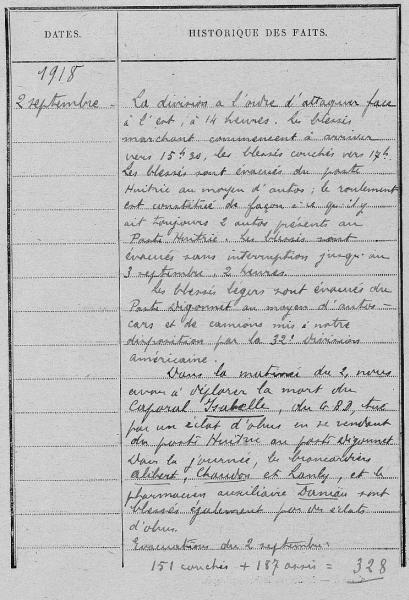 DATES.
HISTORIQUE DES FAITS.
1918
2 septembre
La division a l'ordre d'attaquer face
à l'est, à 14 heures. Les blessés
marchant commencent à arriver
vers 15h30, les blessés couchés vers 17h.
Les blessés sont évacués du poste
Huitrie au moyen d'autos ; le roulement
est constitué de façon à ce qu'il y
ait toujours 2 autos présents au
Poste Huitrie. Les blessés sont
évacués sans interruption jusqu'au
3 septembre, 2 heures.
Les blessés légers sont évacués du
Poste Digonnet au moyen d'autos-
cars et de camions mis à notre
disposition par la 32e Division
américaine.
Dans la matinée du 2, nous
avons à déplorer la mort du
Caporal Isabelle, du G.B.D, tué
par un éclat d'obus en se rendant
du poste Huitrie au poste Digonnet
Dans la journée, les brancardiers
Alibert, Chaudos et Lanly, et le
pharmacien auxiliaire Daniau sont
blessés également par des éclats
d'obus.
Evacuations du 2 septembre:
151 couchés + 187 assis = 328